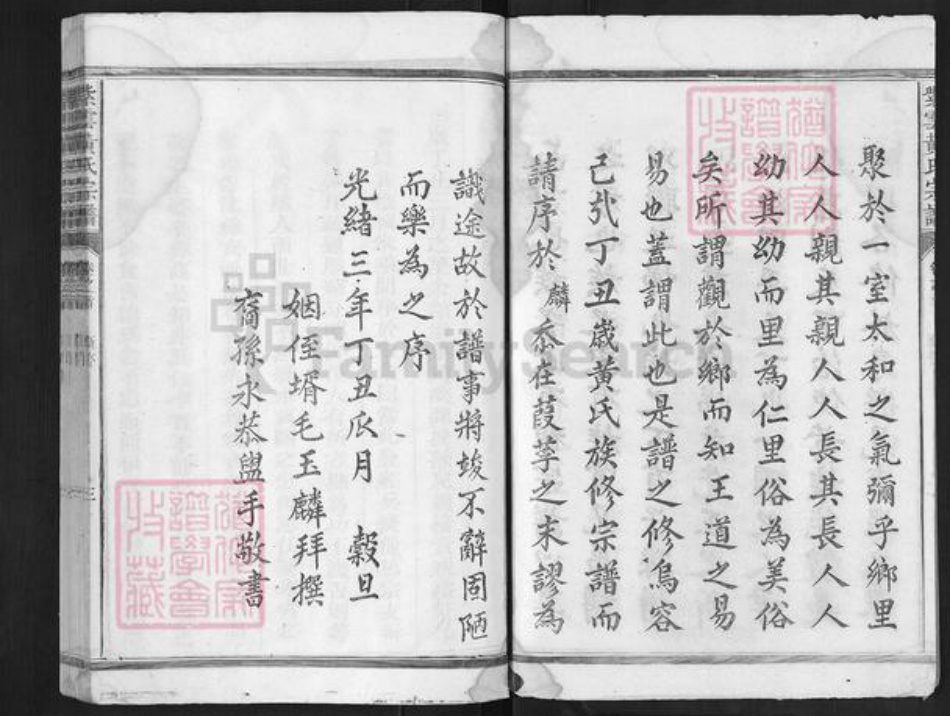 聚於一室太和之氣彌乎鄉里
人人親其親人人長其長人人
幼其幼而里為仁里俗為美俗
矣所謂觀於鄉而知王道之易
易也蓋謂此也是譜之修烏容
已於丁丑歲黃氏族修宗譜而
請序於麟忝在葭莩之末謬為
識途故於譜事將竣不辭固陋
而樂為之序
光緒三年丁丑瓜月 穀旦
姻侄壻毛玉麟拜撰
裔孫永恭盥手敬書
紫雲黃氏宗譜
紫雲黃氏宗譜
FamilySearch